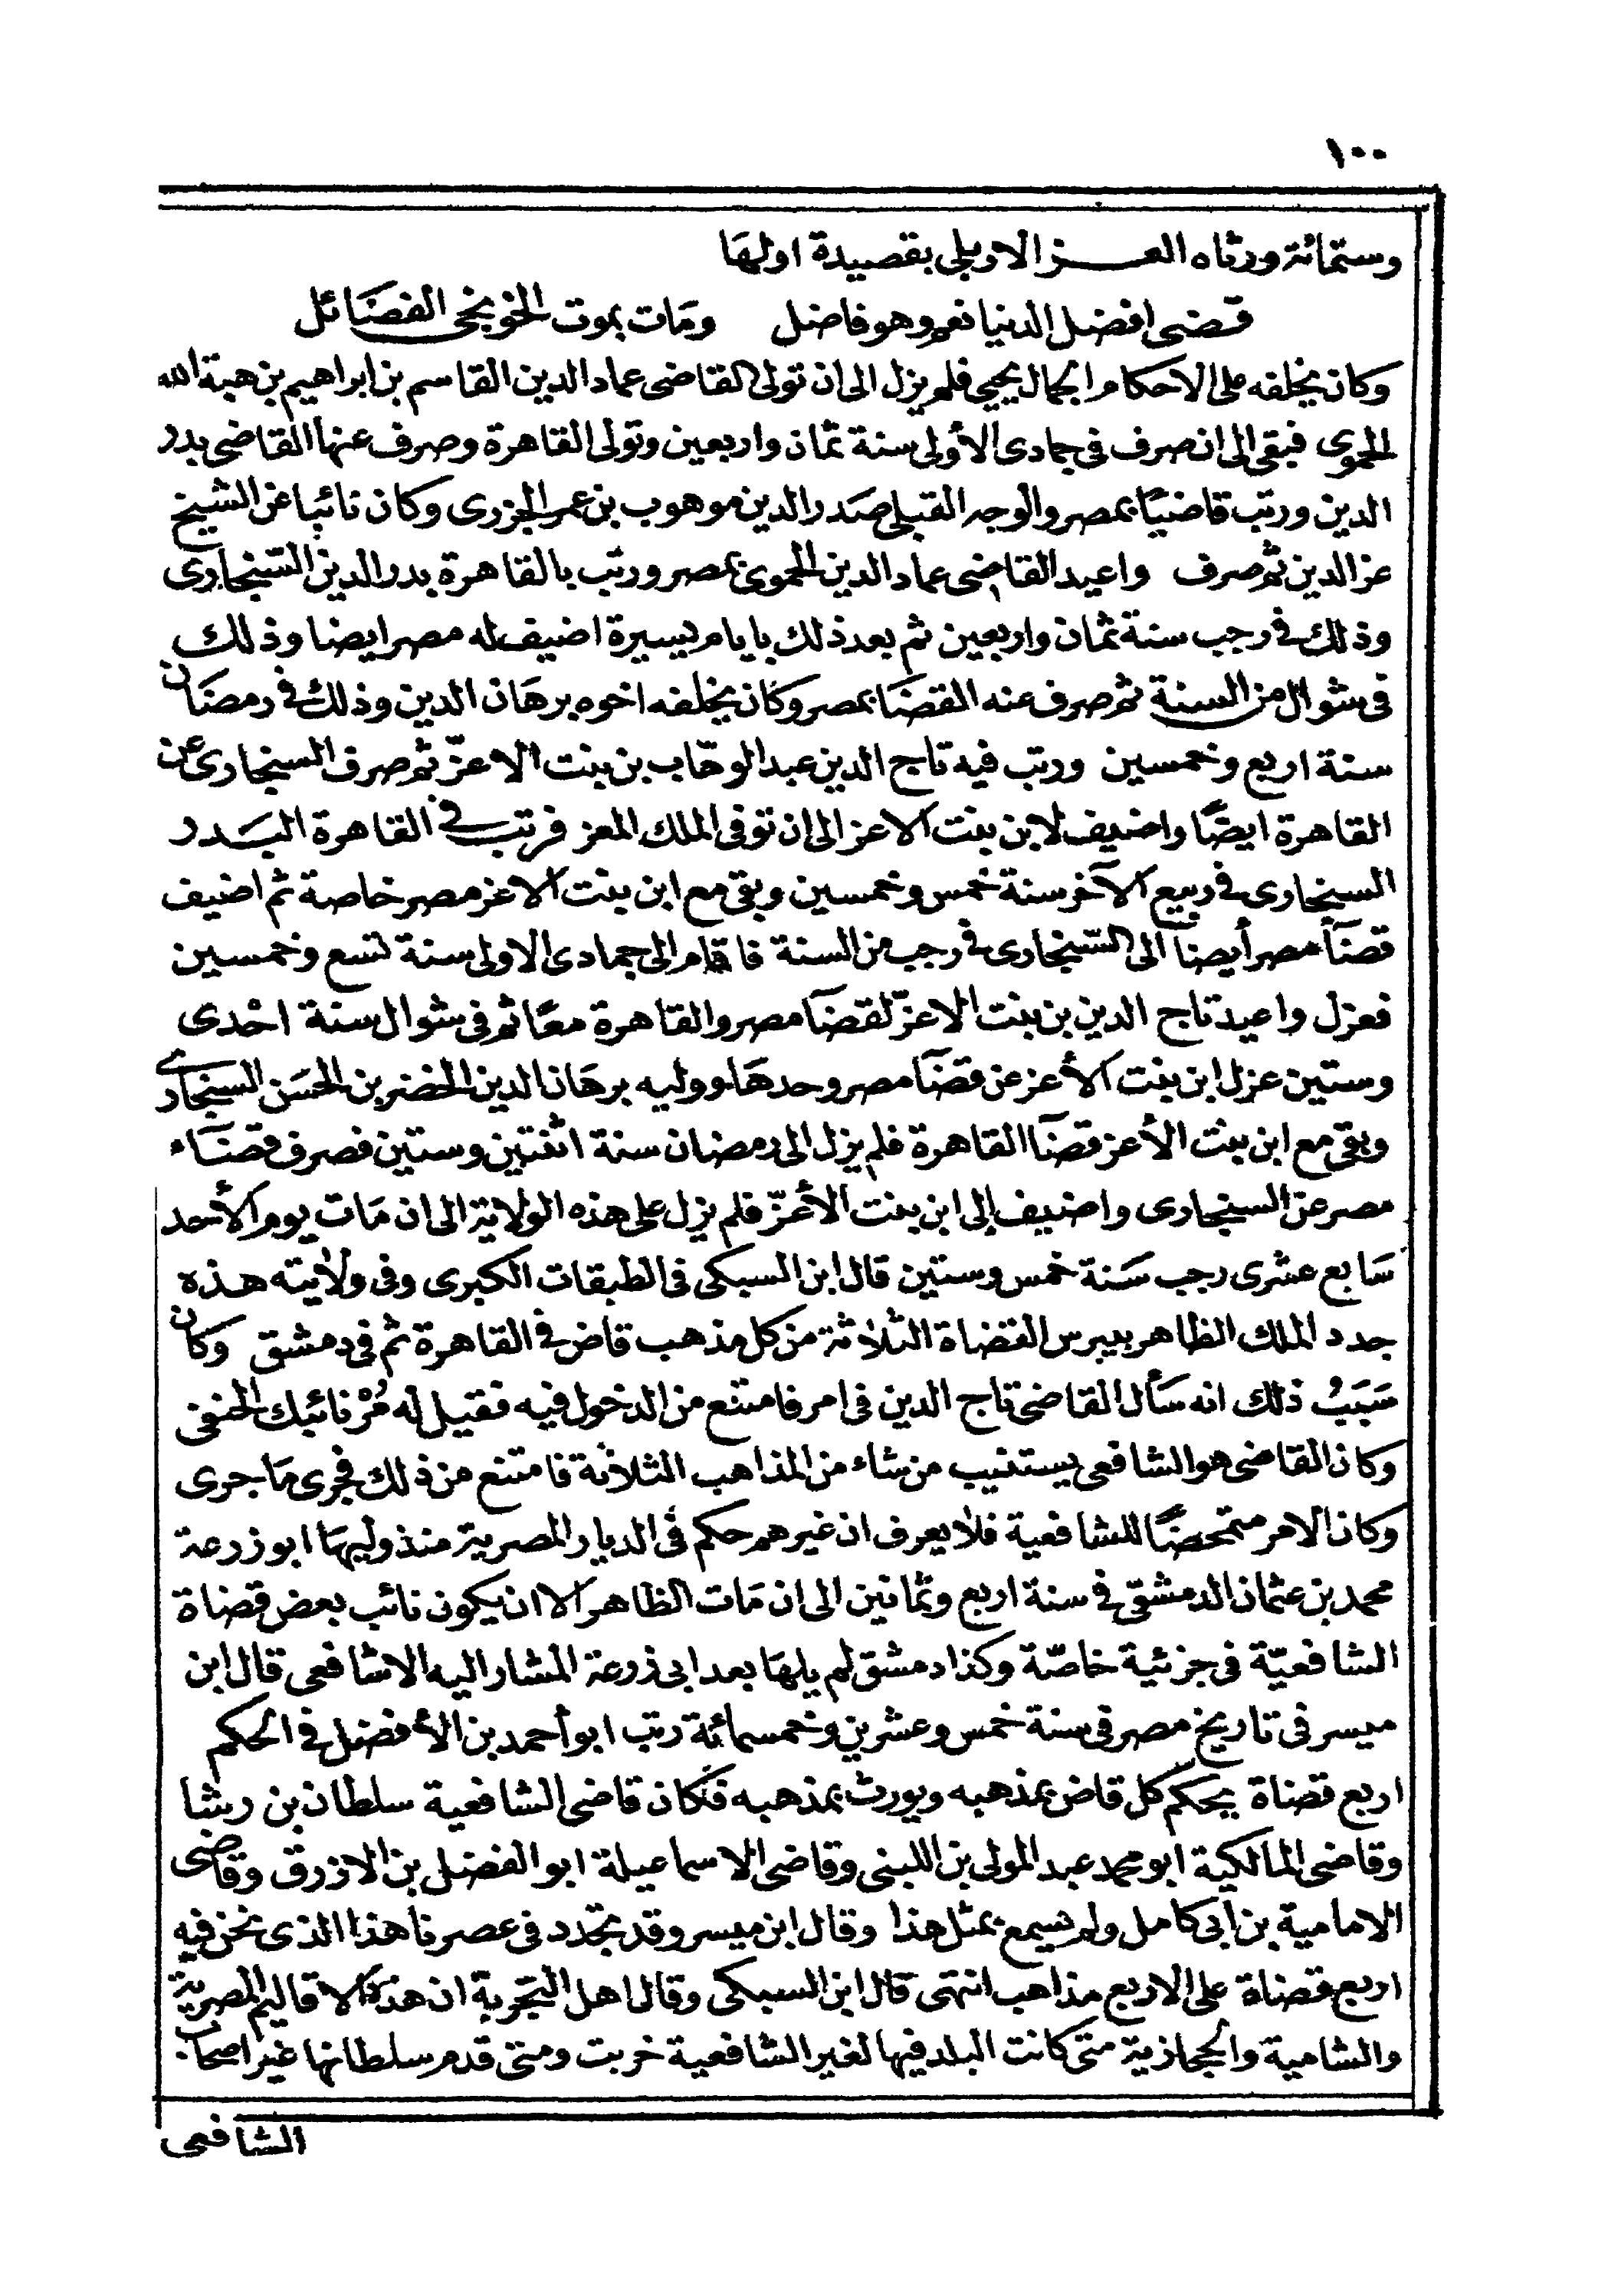 ١٠٠
وستمائة ورثاه العـــز الاربلى بقصيدة اولهَا
قـضى افضل الدنيا نعم وهو فاضل ومَات بموت الخونجى الفضَائل
وكان يخلفه على الاحكام الجمال يحيى فلم يزل الى ان تولى القاضى عماد الدين القاسم بن ابراهيم بن هبة الله
الحموى فبقى الى ان صرف فى جمادى الأولى سنة ثمان واربعين وتولى القاهرة وصرف عنها القاضى بدر
الدين ورتب قاضيًا بمصر والوجه القبلى صَدر الدين موهوب بن عمر الجزرى وكان نائبا عن الشيخ
عز الدين ثم صرف واعيد القاضى عماد الدين الحموى بمصر ورتب بالقاهرة بدر الدين السنجارى
وذلك فى رجب سنة ثمان واربعين ثم بعد ذلك بايام يسيرة اضيف له مصر ايضا وذلك
فى شوال من السنة ثم صرف عنه القضَا بمصر وكان يخلفه اخوه برهَان الدين وذلك فى رمضَان
سنة اربع وخمسين ورتب فيه تاج الدين عبد الوهّاب بن بنت الاعزّ ثم صرف السنجارى عن
القاهرة ايضًا واضيف لابن بنت الاعز الى ان توفى الملك المعز فرتب فى القاهرة البَـدر
السنجارى فى ربيع الآخر سنة خمس وخمسين وبقى مع ابن بنت الاعز مصر خاصة ثم اضيف
قضآ مصر أيضًا الى السنجارى فى رجب من السنة فاقام الى جمادى الاولى سنة تسع وخمسين
فعزل واعيد تاج الدين بن بنت الاعزّ لقضآ مصر والقاهرة معًا ثم فى شوال سنة احْدى
وستين عزل ابن بنت الأعز عن قضآ مصر وحدهَا ووليه برهَان الدين الخضر بن الحسَن السنجارى
وبقى مع ابن بنت الأعز قضآ القاهرة فلم يزل الى رمضان سنة اثنتين وستين فصرف قضَآء
مصر عن السنجارى واضيف إلى ابن بنت الأعزّ فلم يزل على هذه الولاية الى ان مَات يوم الأحد
سَابع عشرى رجب سَنة خمس وستين قال ابن السبكى فى الطبقات الكبرى وفى ولايته هـذه
جدد الملك الظاهر بيبرس القضاة الثلاثة من كل مذهب قاض فى القاهرة ثم فى دمشق وكان
سَبَبُ ذلك انه سَأل القاضى تاج الدين فى امر فامتنع من الدخول فيه فقيل له مُرْ نائبك الحنفى
وكان القاضى هو الشافعى يستنيب من شاء من المذاهب الثلاثة فامتنع من ذلك فجرى مَا جرى
وكان الامر متمحضًا للشافعية فلا يعرف ان غيرهم حكم فى الديار المصرية منذ وليهَا ابو زرعة
محمد بن عثمان الدمشقى فى سنة اربع وثمانين الى ان مَات الظاهر الا ان يكون نائب بعض قضاة
الشافعيّة فى جزئية خاصّة وكذا دمشق لم يلهَا بعد ابى زرعة المشار اليه الا شافعى قال ابن
ميسر فى تاريخ مصر فى سنة خمس وعشرين وخمسمائة رتب ابو أحمد بن الأفضل فى الحكم
اربع قضاة يحكم كل قاض بمذهبه ويورث بمذهبه فكان قاضى الشافعية سلطان بن رشا
وقاضى المالكية ابو محمد عبد المولى بن اللبنى وقاضى الاسماعيلة ابو الفضل بن الازرق وقاضى
الامامية بن ابى كامل ولم يسمع بمثل هذا وقال ابن ميسر وقد تجدد فى عصرنا هذا الذى نحن فيه
اربع قضاة على الاربع مذاهب انتهى قال ابن السبكى وقال اهل التجربة ان هذه الاقاليم المصرية
والشامية والحجازية متى كانت البلد فيها لغير الشافعية خربت ومتى قدم سلطانها غير اصحاب
الشافعى